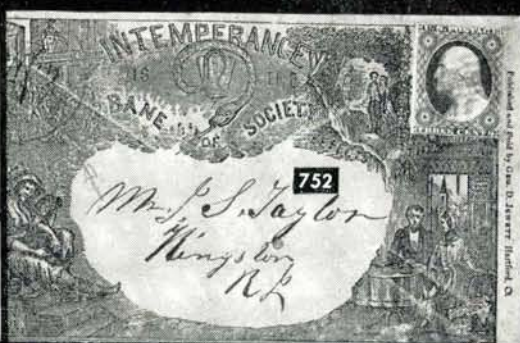 INTEMPERANCE
IS THE
BANE OF SOCIETY
U.S. POSTAGE
THREE CENTS
752
Mr J. S. Taylor
Kingston
R I
Published and Sold by Geo. D. Jewett Hartford, Ct